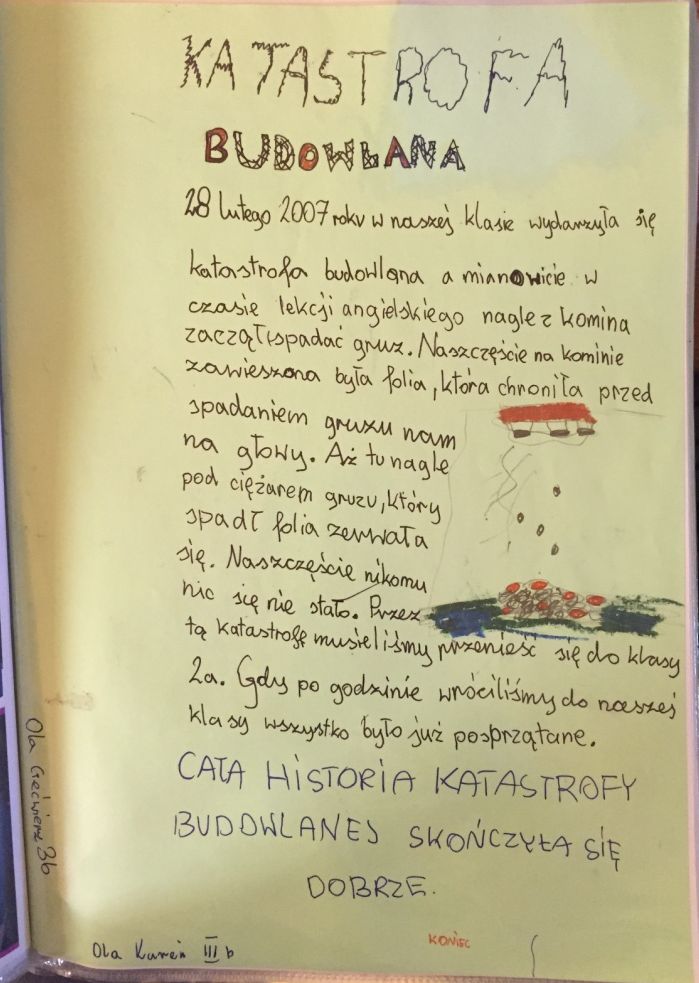 KATASTROFA
BUDOWLANA
28 lutego 2007 roku w naszej klasie wydarzyła się
katastrofa budowlana a mianowicie w
czasie lekcji angielskiego nagle z komina
zaczął spadać gruz. Naszczęście na kominie
zawieszona była folia, która chroniła przed
spadaniem gruzu nam
na głowy. Aż tu nagle
pod ciężarem gruzu, który
spadł folia zerwała
się. Naszczęście nikomu
nic się nie stało. Przez
tą katastrofę musieliśmy przenieść się do klasy
2a. Gdy po godzinie wróciliśmy do naszej
klasy wszystko było już posprzątane.
CAŁA HISTORIA KATASTROFY
BUDOWLANEJ SKOŃCZYŁA SIĘ
DOBRZE.
KONIEC
Ola Kureń III b
Ola 3b